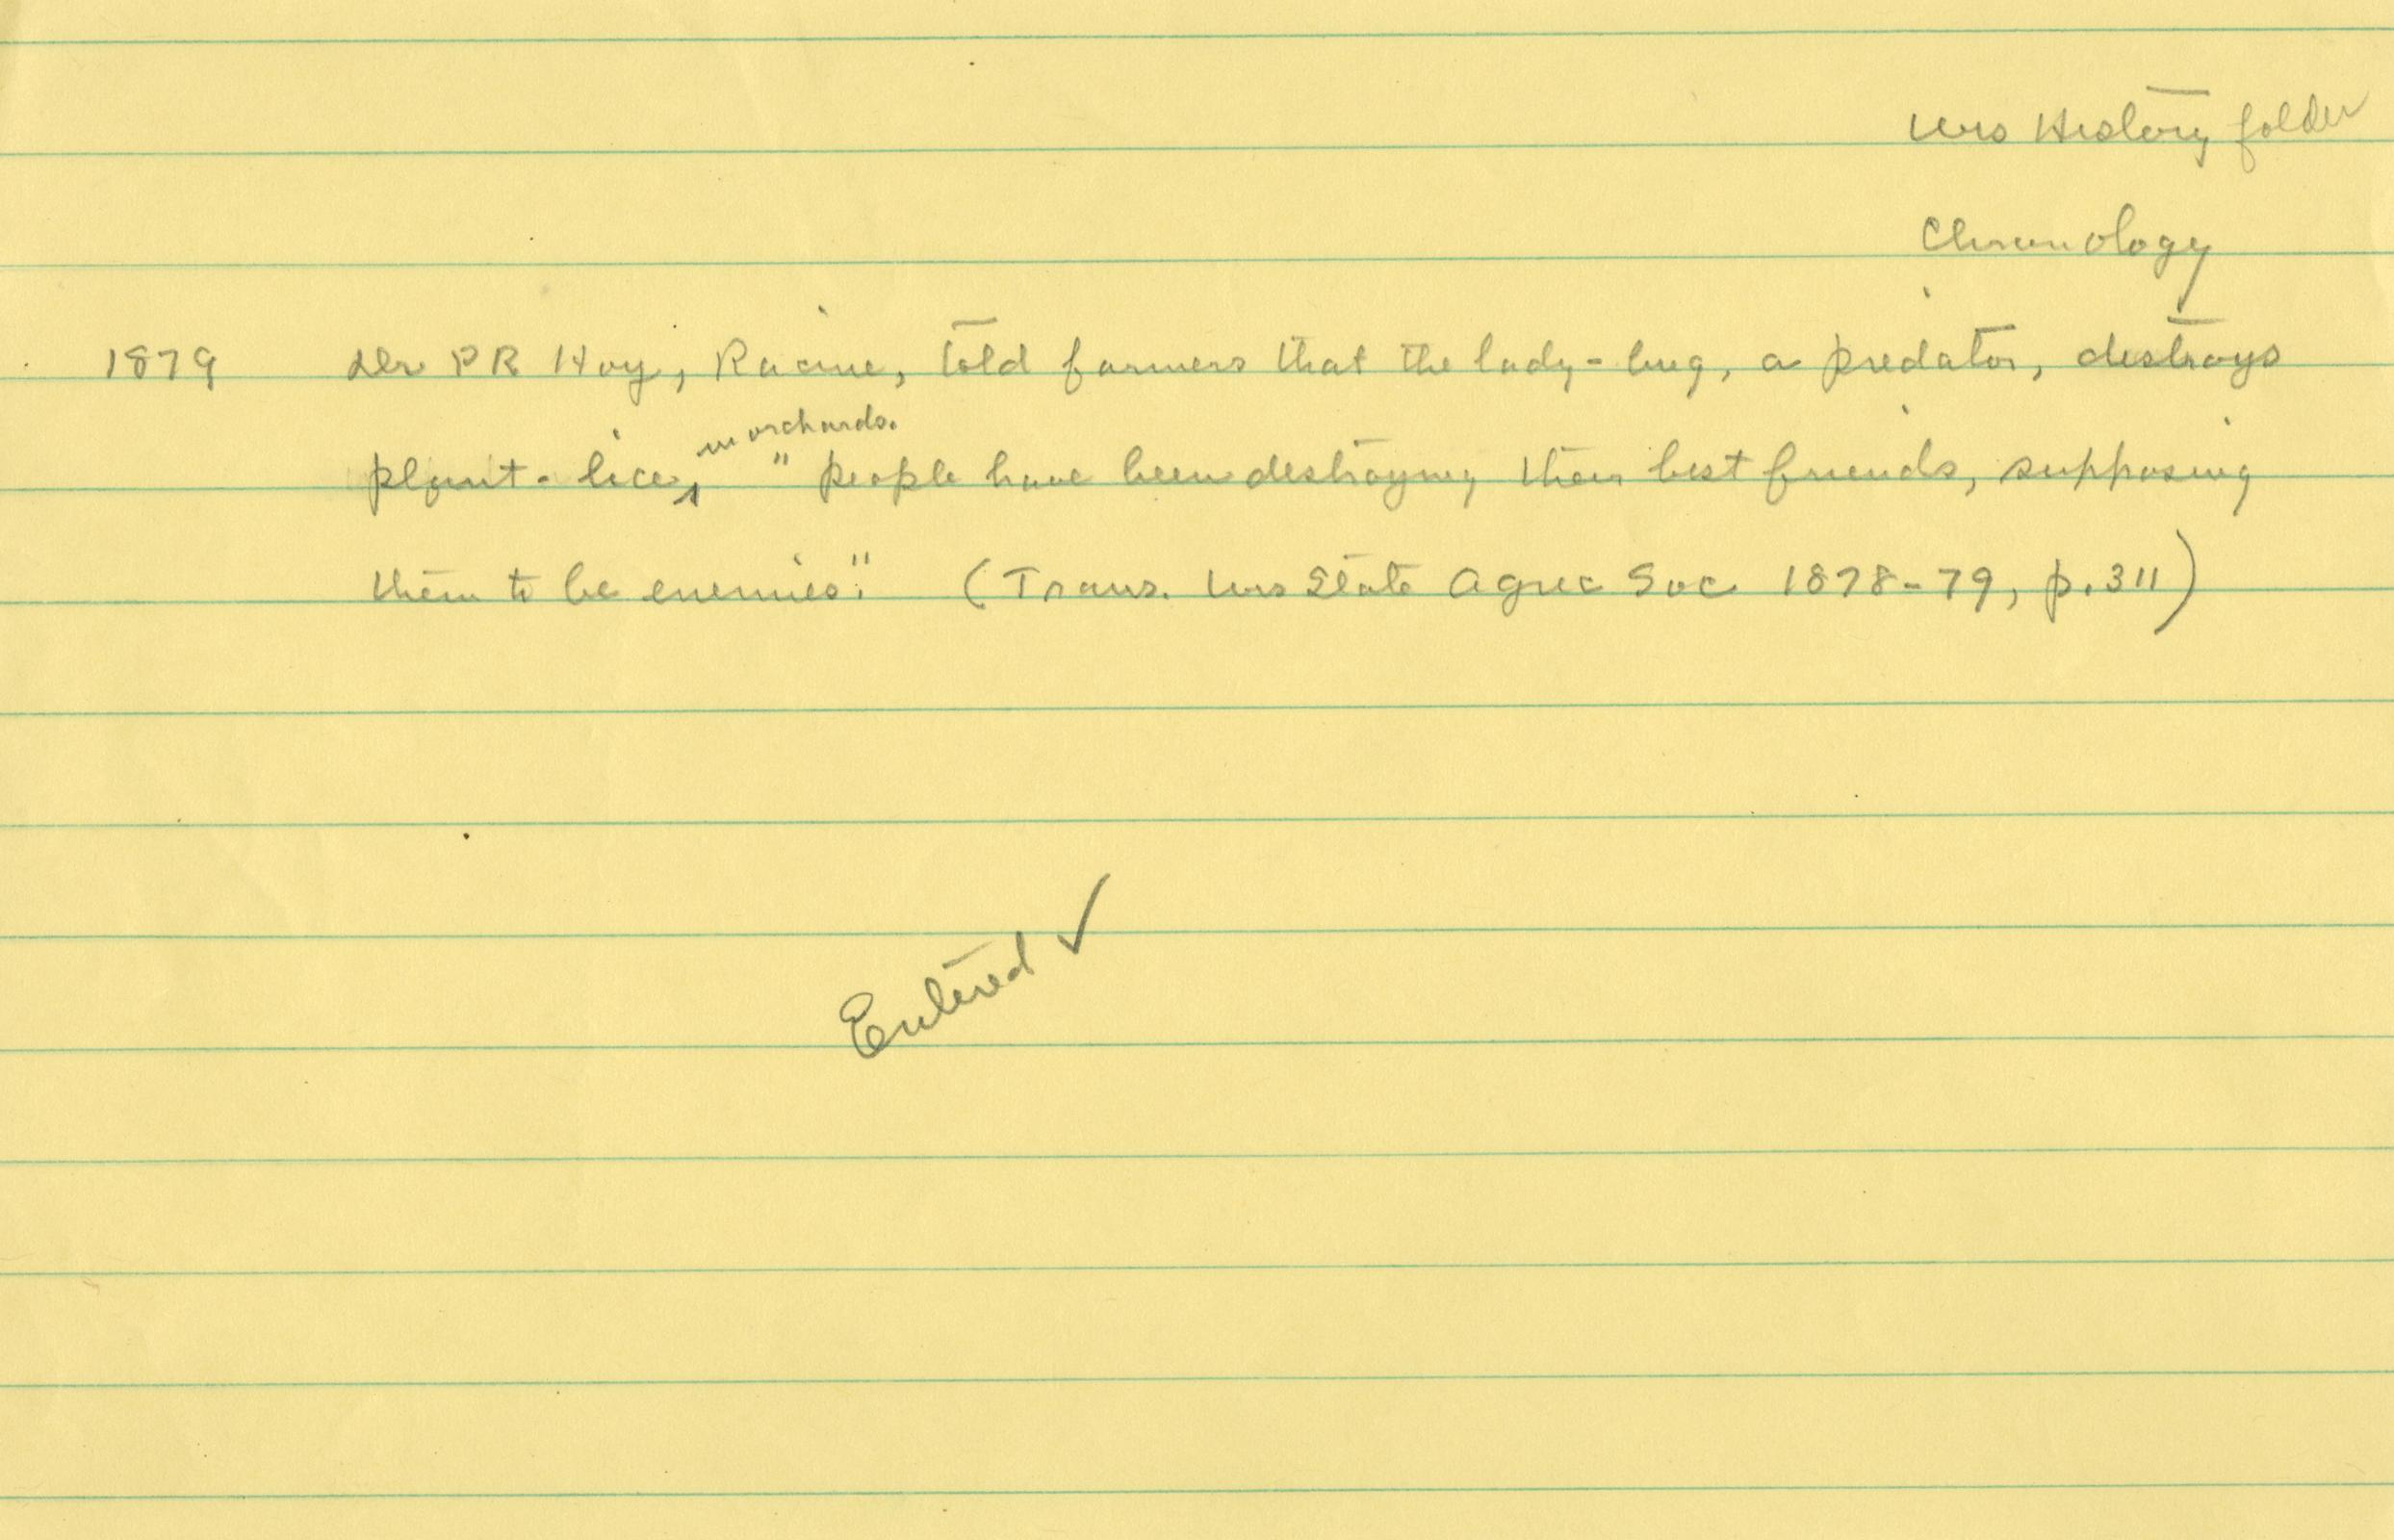 Wis History folder
Chronology
1879 Dr PR Hoy, Racine, told farmers that the lady-bug, a predator, destroys
in orchards.
plant-lice, " people have been destroying their best friends, supposing
them to be enemies." (Trans. Wis State Agric Soc 1878-79, p.311)
Entered ✓